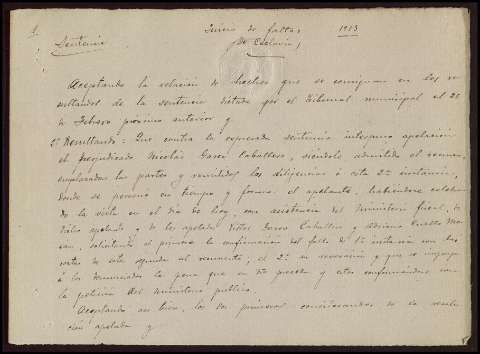 Juicio de faltas 1913
Sentencia
(De Esclavin)
Aceptando la relación de hechos que se consignan en los re
sultandos de la sentencia dictada por el Tribunal municipal el 22
de Febrero próximo anterior y
2º Resultando: Que contra la expresada sentencia interpuso apelación
el perjudicado Nicolás García Caballero, siéndole admitido el recurso,
emplazadas las partes y remitidas las diligencias á esta 2ª instancia,
donde se personó en tiempo y forma el apelante, habiéndose celebra
do la vista en el día de hoy, con asistencia del Ministerio fiscal, de
dicho apelante y de los apelados Caballero y
solicitando el primero la confirmación del fallo de 1ª instancia con las
costas de esta al recurrente; el 2º su revocación y que se imponga
á los denunciados la pena que en dro proceda y estos conformándose con
la petición del ministerio público.
Aceptando así bien, los dos primeros considerandos de la senten
cia apelada y